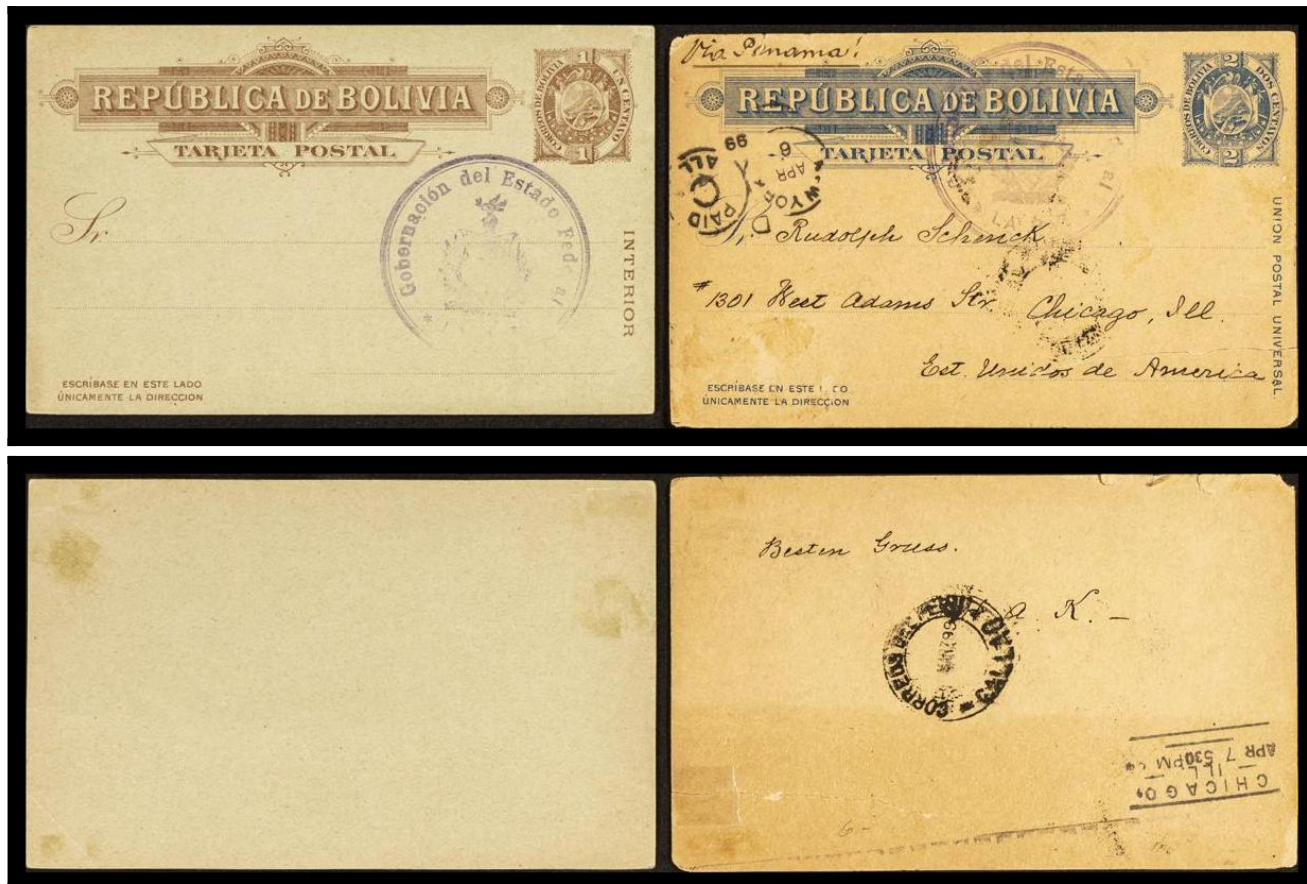 REPÚBLICA DE BOLIVIA
TARJETA POSTAL
CORREOS DE BOLIVIA
UN CENTAVO
1
1
Gobernación del Estado Federal
Sr.
INTERIOR
ESCRÍBASE EN ESTE LADO
ÚNICAMENTE LA DIRECCION
Via Panama!
REPÚBLICA DE BOLIVIA
TARJETA POSTAL
CORREOS DE BOLIVIA
DOS CENTAVOS
2
2
del Estado
PAID
ALL
APR
6
99
Sr. Rudolph Schenck
#1301 West Adams Str. Chicago, Ill.
Est. Unidos de America
UNION POSTAL UNIVERSAL.
ESCRÍBASE EN ESTE
ÚNICAMENTE LA DIRECCION
Besten Gruss.
K.-
CORREOS DEL PERU
CALLAO
CHICAGO,
ILL
APR 7 530PM
6-